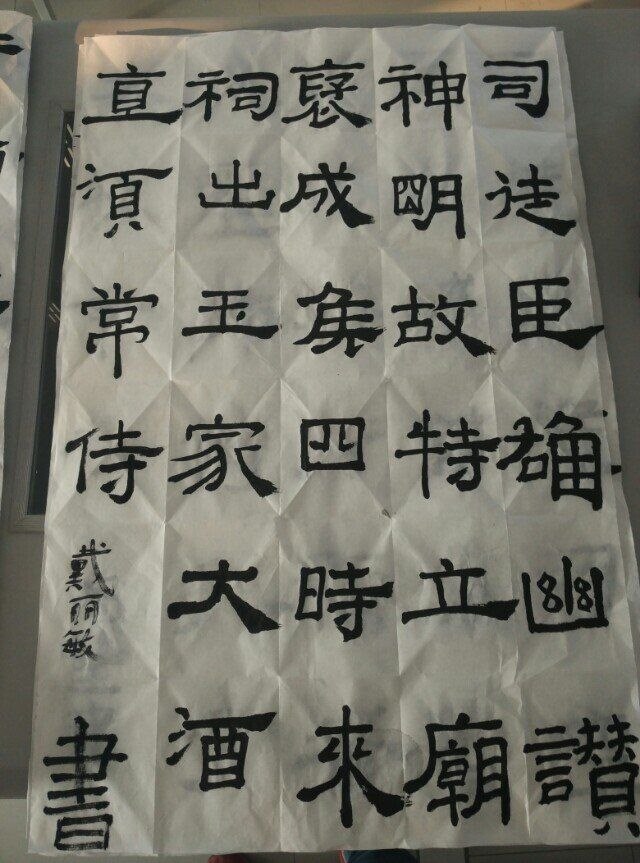 司徒臣雄幽讃
神明故特立廟
褒成矦四時來
祠出王家大酒
直須常侍
戴丽敏
書